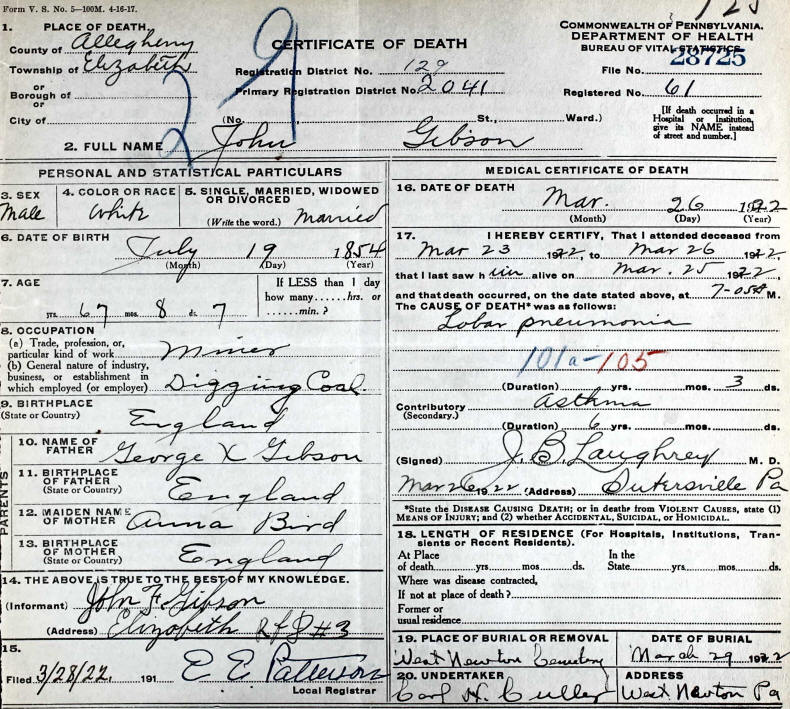 Form V. S. No. 5—100M. 4-16-17.
1. PLACE OF DEATH
County of Allegheny
Township of Elizabeth
or
Borough of
or
City of
CERTIFICATE OF DEATH
Registration District No. 129
Primary Registration District No. 2041
(No. St., Ward.)
COMMONWEALTH OF PENNSYLVANIA.
DEPARTMENT OF HEALTH
BUREAU OF VITAL STATISTICS
File No. 28725
Registered No. 61
[If death occurred in a
Hospital or Institution,
give its NAME instead
of street and number.]
29
2. FULL NAME John Gibson
PERSONAL AND STATISTICAL PARTICULARS
3. SEX
Male
4. COLOR OR RACE
White
5. SINGLE, MARRIED, WIDOWED
OR DIVORCED
(Write the word.) Married
6. DATE OF BIRTH
July 19 1854
(Month) (Day) (Year)
7. AGE
yrs. 67 mos. 8 ds. 7
If LESS than 1 day
how many......hrs. or
......min.?
8. OCCUPATION
(a) Trade, profession, or,
particular kind of work Miner
(b) General nature of industry,
business, or establishment in
which employed (or employer) Digging Coal.
9. BIRTHPLACE
(State or Country) England
PARENTS
10. NAME OF
FATHER George X Gibson
11. BIRTHPLACE
OF FATHER
(State or Country) England
12. MAIDEN NAME
OF MOTHER Anna Bird
13. BIRTHPLACE
OF MOTHER
(State or Country) England
14. THE ABOVE IS TRUE TO THE BEST OF MY KNOWLEDGE.
(Informant) John F. Gibson
(Address) Elizabeth R f D #3
15.
Filed 3/28/22. 191 E E Patterson
Local Registrar
MEDICAL CERTIFICATE OF DEATH
16. DATE OF DEATH
Mar. 26 1922
(Month) (Day) (Year)
17. I HEREBY CERTIFY, That I attended deceased from
Mar 23 1922, to Mar 26 1922
that I last saw him alive on Mar. 25 1922.
and that death occurred, on the date stated above, at M.
The CAUSE OF DEATH* was as follows:
Lobar pneumonia
101a-105
(Duration) yrs. mos. 3 ds.
Contributory Asthma
(Secondary.)
(Duration) 6 yrs. mos. ds.
(Signed) J. B. Laughrey M. D.
Mar 26 1922 (Address) Sutersville Pa
*State the DISEASE CAUSING DEATH; or in deaths from VIOLENT CAUSES, state (1)
MEANS OF INJURY; and (2) whether ACCIDENTAL, SUICIDAL, or HOMICIDAL.
18. LENGTH OF RESIDENCE (For Hospitals, Institutions, Tran-
sients or Recent Residents).
At Place In the
of death yrs. mos. ds. State yrs. mos. ds.
Where was disease contracted,
If not at place of death?
Former or
usual residence
19. PLACE OF BURIAL OR REMOVAL
West Newton Cemetery
DATE OF BURIAL
March 29 1922
20. UNDERTAKER
Carl H. Culler
ADDRESS
West Newton Pa